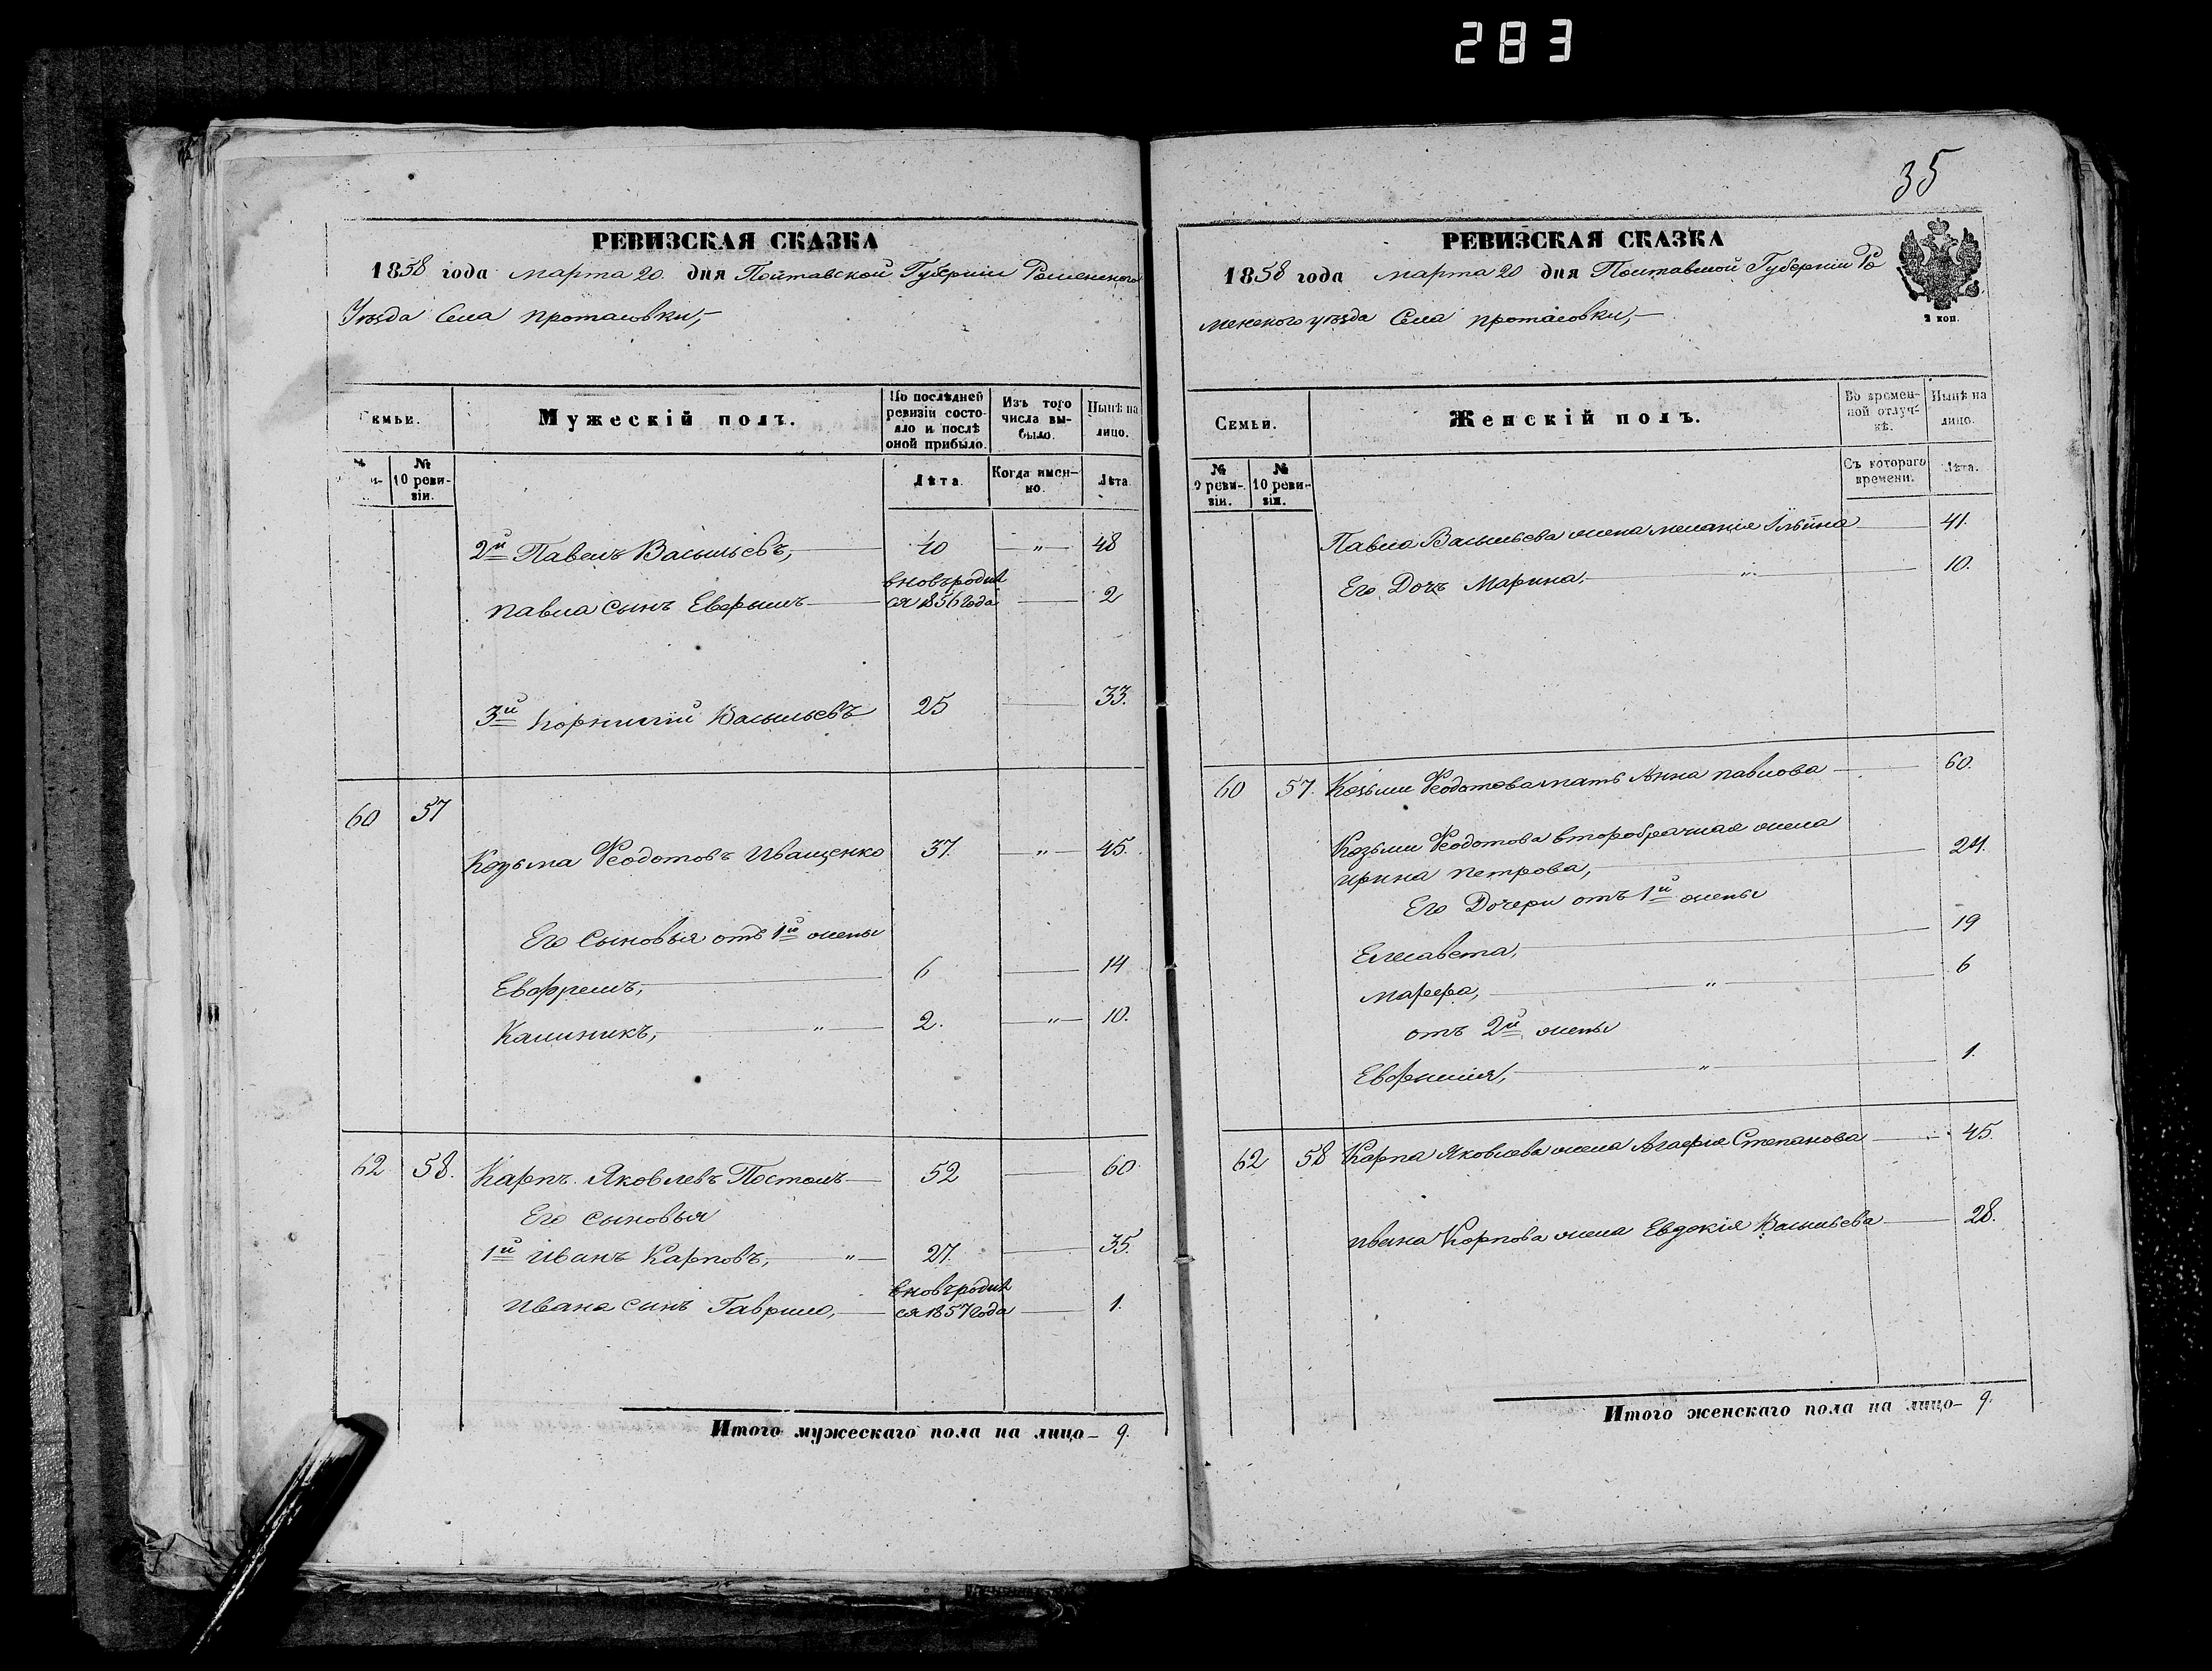 283
РЕВИЗСКАЯ СКАЗКА
1858 года марта 20 дня Полтавской Губерніи Роменского
Уѣзда Села протасовки,
Семьи.
Мужескій полъ.
По послѣдней ревизіи состояло и послѣ оной прибыло.
Изъ того числа выбыло.
Нынѣ на лицо.
№
№ 10 ревизіи.
Лѣта.
Когда именно.
Лѣта
2й Павелъ Васильевъ, 40 " 48
вновьродил
павла сынъ Ефрымъ ся 1856 года 2
3й Корнилій Васильевъ 25 33.
60 57
Козьма Феодотовъ Иващенко 37. " 45.
Его Сыновья отъ 1й жены
Евфремъ, 6 14
Калиникъ, " 2. " 10.
62 58. Карпъ Яковлевъ Постолъ 52 60.
Его сыновья
1й Иванъ Карповъ, " 27. 35.
вновьродил
Ивана синъ Гаврило, ся 1857 года 1.
Итого мужескаго пола на лицо — 9.
35
РЕВИЗСКАЯ СКАЗКА
1858 года марта 20 дня Полтавской Губерніи Ро
менского уѣзда Села протасовки,
2 коп.
Семьи.
Женскій полъ.
Во временной отлучкѣ.
Нынѣ на лицо.
№ 9 ревизіи.
№ 10 ревизіи.
Съ котораго времени.
Лѣта.
Павла Васильева жена меланія Ильина 41.
Его Дочъ Марина, " 10.
60 57. Козьми Феодотова мать Анна павлова 60.
Козьми Феодотова второбрачная жена
ирина петрова, 24.
Его Дочери отъ 1й жены
Елисавета, 19
марфа, " 6
отъ 2й жены
Евфимия, " 1.
62 58 Карпа Яковлева жена Агафія Степанова 45.
ивана Карпова жена Евдокія Васильева 28.
Итого женскаго пола на лицо — 9.